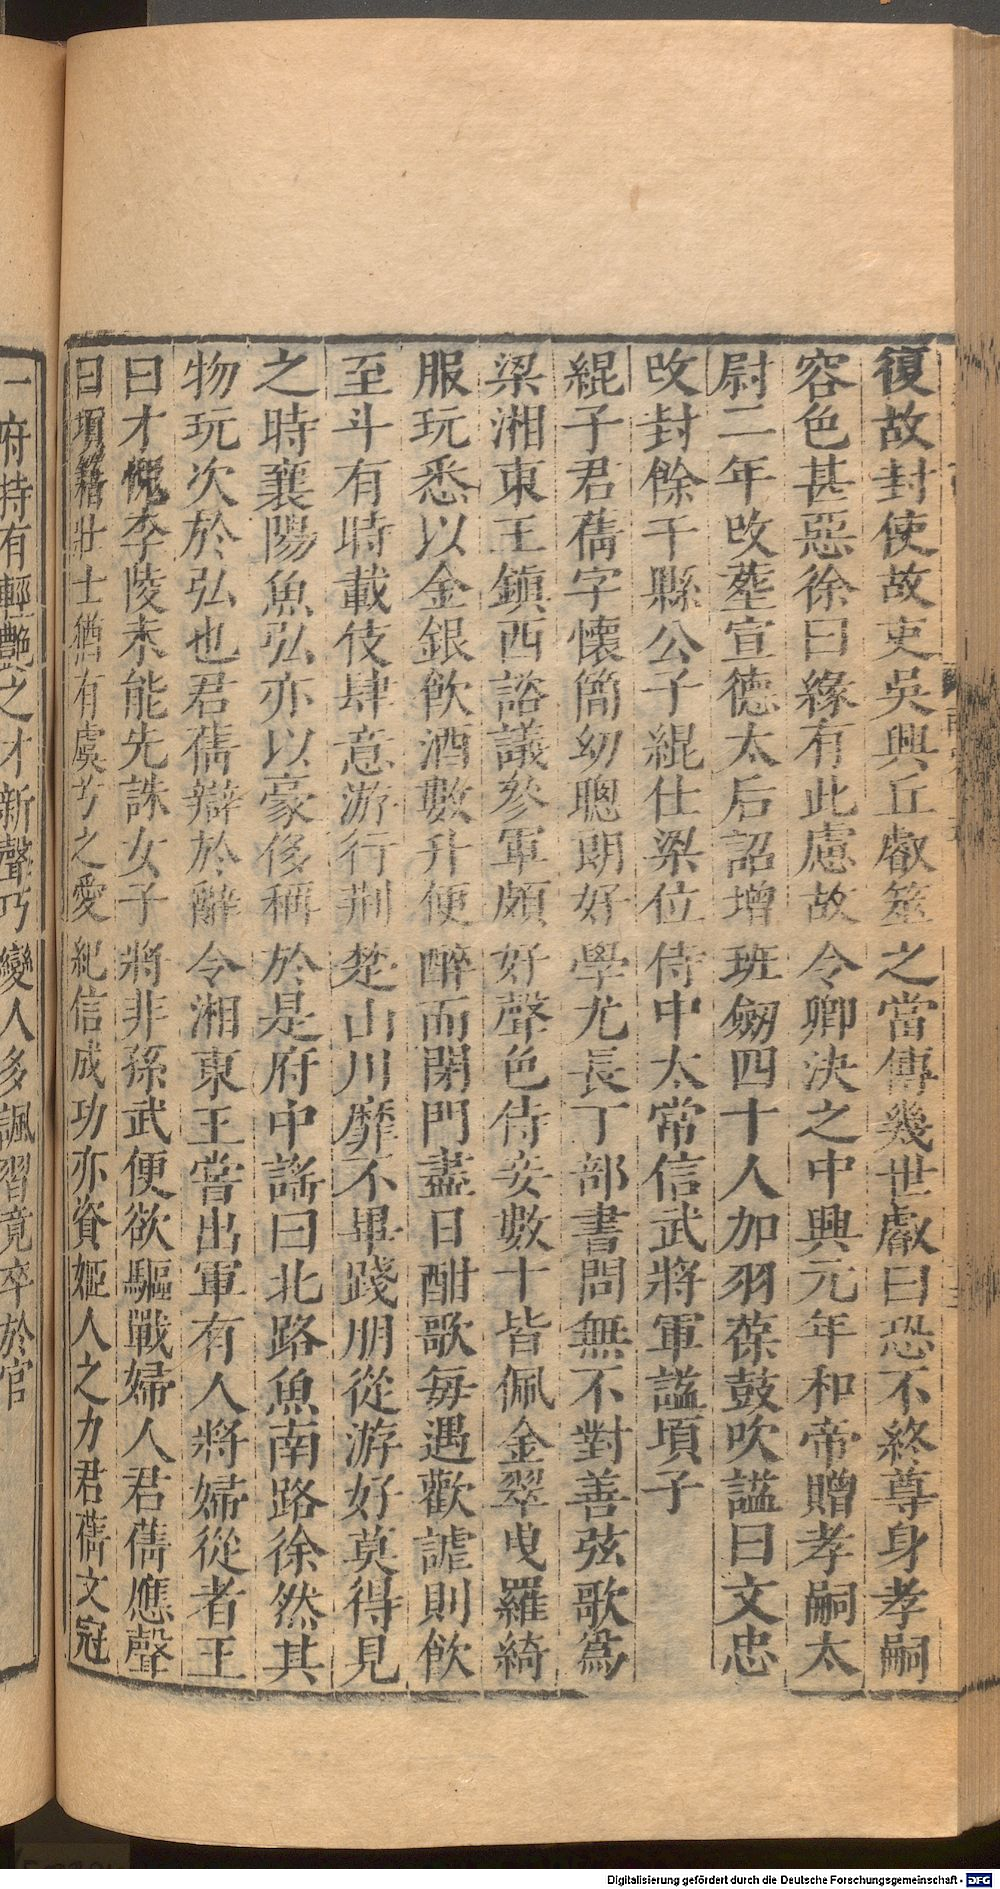 復故封使故吏吳興丘叡筮之當傳幾世叡曰恐不終尊身孝嗣
容色甚惡徐曰緣有此慮故令卿決之中興元年和帝贈孝嗣太
尉二年改葬宣德太后詔增班劒四十人加羽葆鼓吹謚曰文忠
改封餘干縣公子緄仕梁位侍中太常信武將軍謚頃子
緄子君蒨字懷簡幼聰朗好學尤長丁部書問無不對善弦歌爲
梁湘東王鎮西諮議參軍頗好聲色侍妾數十皆佩金翠曳羅綺
服玩悉以金銀飮酒數升便醉而閉門盡日酣歌每遇歡謔則飮
至斗有時載伎肆意游行荆楚山川靡不畢踐朋從游好莫得見
之時襄陽魚弘亦以豪侈稱於是府中謠曰北路魚南路徐然其
物玩次於弘也君蒨辯於辭令湘東王嘗出軍有人將婦從者王
曰才愧李陵未能先誅女子將非孫武便欲驅戰婦人君蒨應聲
曰項籍壯士猶有虞兮之愛紀信成功亦資姬人之力君蒨文冠
一府特有輕艷之才新聲巧變人多諷習竟卒於官
Digitalisierung gefördert durch die Deutsche Forschungsgemeinschaft - DFG